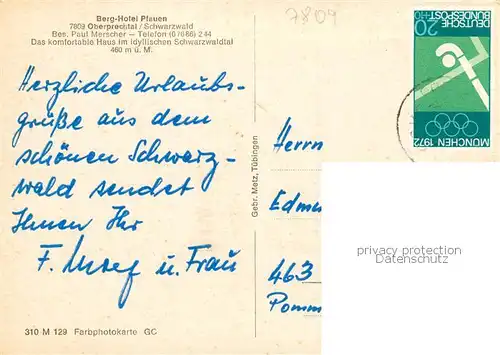 Berg-Hotel Pfauen
7809 Oberprechtal / Schwarzwald
Bes. Paul Merscher — Telefon (07866) 244
Das komfortable Haus im idyllischen Schwarzwaldtal
460 m ü. M.
7809
Herzliche Urlaubs-
grüße aus dem
schönen Schwarz-
wald sendet
Ihnen Ihr
F. u. Frau
310 M 129 Farbphotokarte GC
Gebr. Metz, Tübingen
DEUTSCHE
BUNDESPOST
20+10
MÜNCHEN 1972
Herrn
Edmu
463
Pomm
privacy protection
Datenschutz